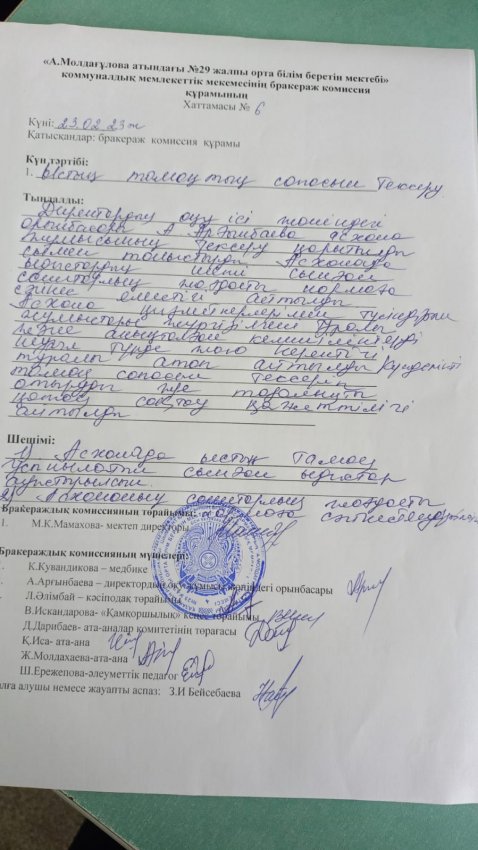 «А.Молдағұлова атындағы №29 жалпы орта білім беретін мектебі»
коммуналдық мемлекеттік мекемесінің бракераж комиссия
құрамының
Хаттамасы № 6
Күні: 23.02.23ж
Қатысқандар: бракераж комиссия құрамы
Күн тәртібі:
1. Ыстық тамақтың сапасын тексеру
Тыңдалды:
Директордың оқу ісі жөніндегі
орынбасары А Арғынбаева асхана
жұмысының тексеру қорытынды
сымен таныстырды Асханада
ыдыстардың шеті сынған
санитарлық жағдайы нормаға
сәйкес еместігі айтылды
Асхана қызметкерлерімен түсіндірме
жұмыстары жүргізілмеді
және анықталған кемшіліктерді
жою керектігі
туралы атап айтылды Күнделікті
тамақ сапасын тексеріп
отыруды және
сақтау қажеттілігі
айтылды
Шешімі:
1) Асханада ыстық тамақ
сынған ыдыстар
ауыстырылсын.
2) Асхананың санитарлық жағдайы
нормаға
Бракераждық комиссияның торайымы:
1. М.К.Мамахова- мектеп директоры
Бракераждық комиссияның мүшелері:
К.Кувандикова – медбике
А.Арғынбаева – директордың оқу жұмысы жөніндегі орынбасары
Л.Әлімбай – кәсіподак төрайымы
В.Искандарова- «Қамқоршылық» кеңес төрайымы
Д.Дарибаев- ата-аналар комитетінің төрағасы
Қ.Иса- ата-ана
Ж.Молдахаева-ата-ана
Ш.Ережепова-әлеуметтік педагог
алға алушы немесе жауапты аспаз: З.И Бейсебаева